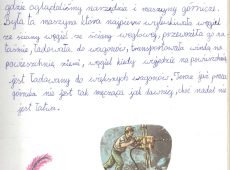 gdzie oglądaliśmy narzędzia i maszyny górnicze.
Była to maszyna która najpierw wyłuskiwała węgiel
ze ściany węgiel ze ściany węglowej, przewoziła go na
taśmie, ładowała do wagonów, transportowała windą na
powierzchnię ziemi, węgiel kiedy wyjedzie na powierzchnię
jest ładowany do większych wagonów. Teraz już praca
górnika nie jest tak męcząca jak dawniej, choć nadal nie
jest łatwa.